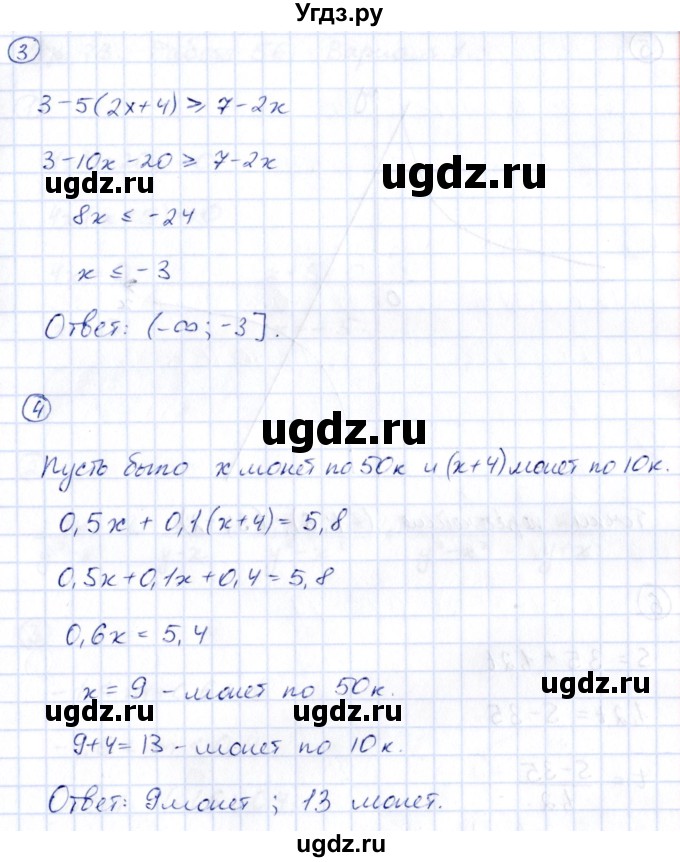 Угдз.ру
3
3-5(2x+4) ⩾ 7-2x
3-10x-20 ⩾ 7-2x
ugdz.ru
ugdz.ru
8x ≤ -24
x ≤ -3
Ответ: (-∞; -3].
4
ugdz.ru
Пусть было x монет по 50к и (x+4) монет по 10к.
0,5x + 0,1(x+4) = 5,8
0,5x+0,1x+0,4 = 5,8
0,6x = 5,4
x = 9 - монет по 50к.
ugdz.ru
ugdz.ru
9+4=13 - монет по 10к.
Ответ: 9 монет ; 13 монет.
ugdz.ru